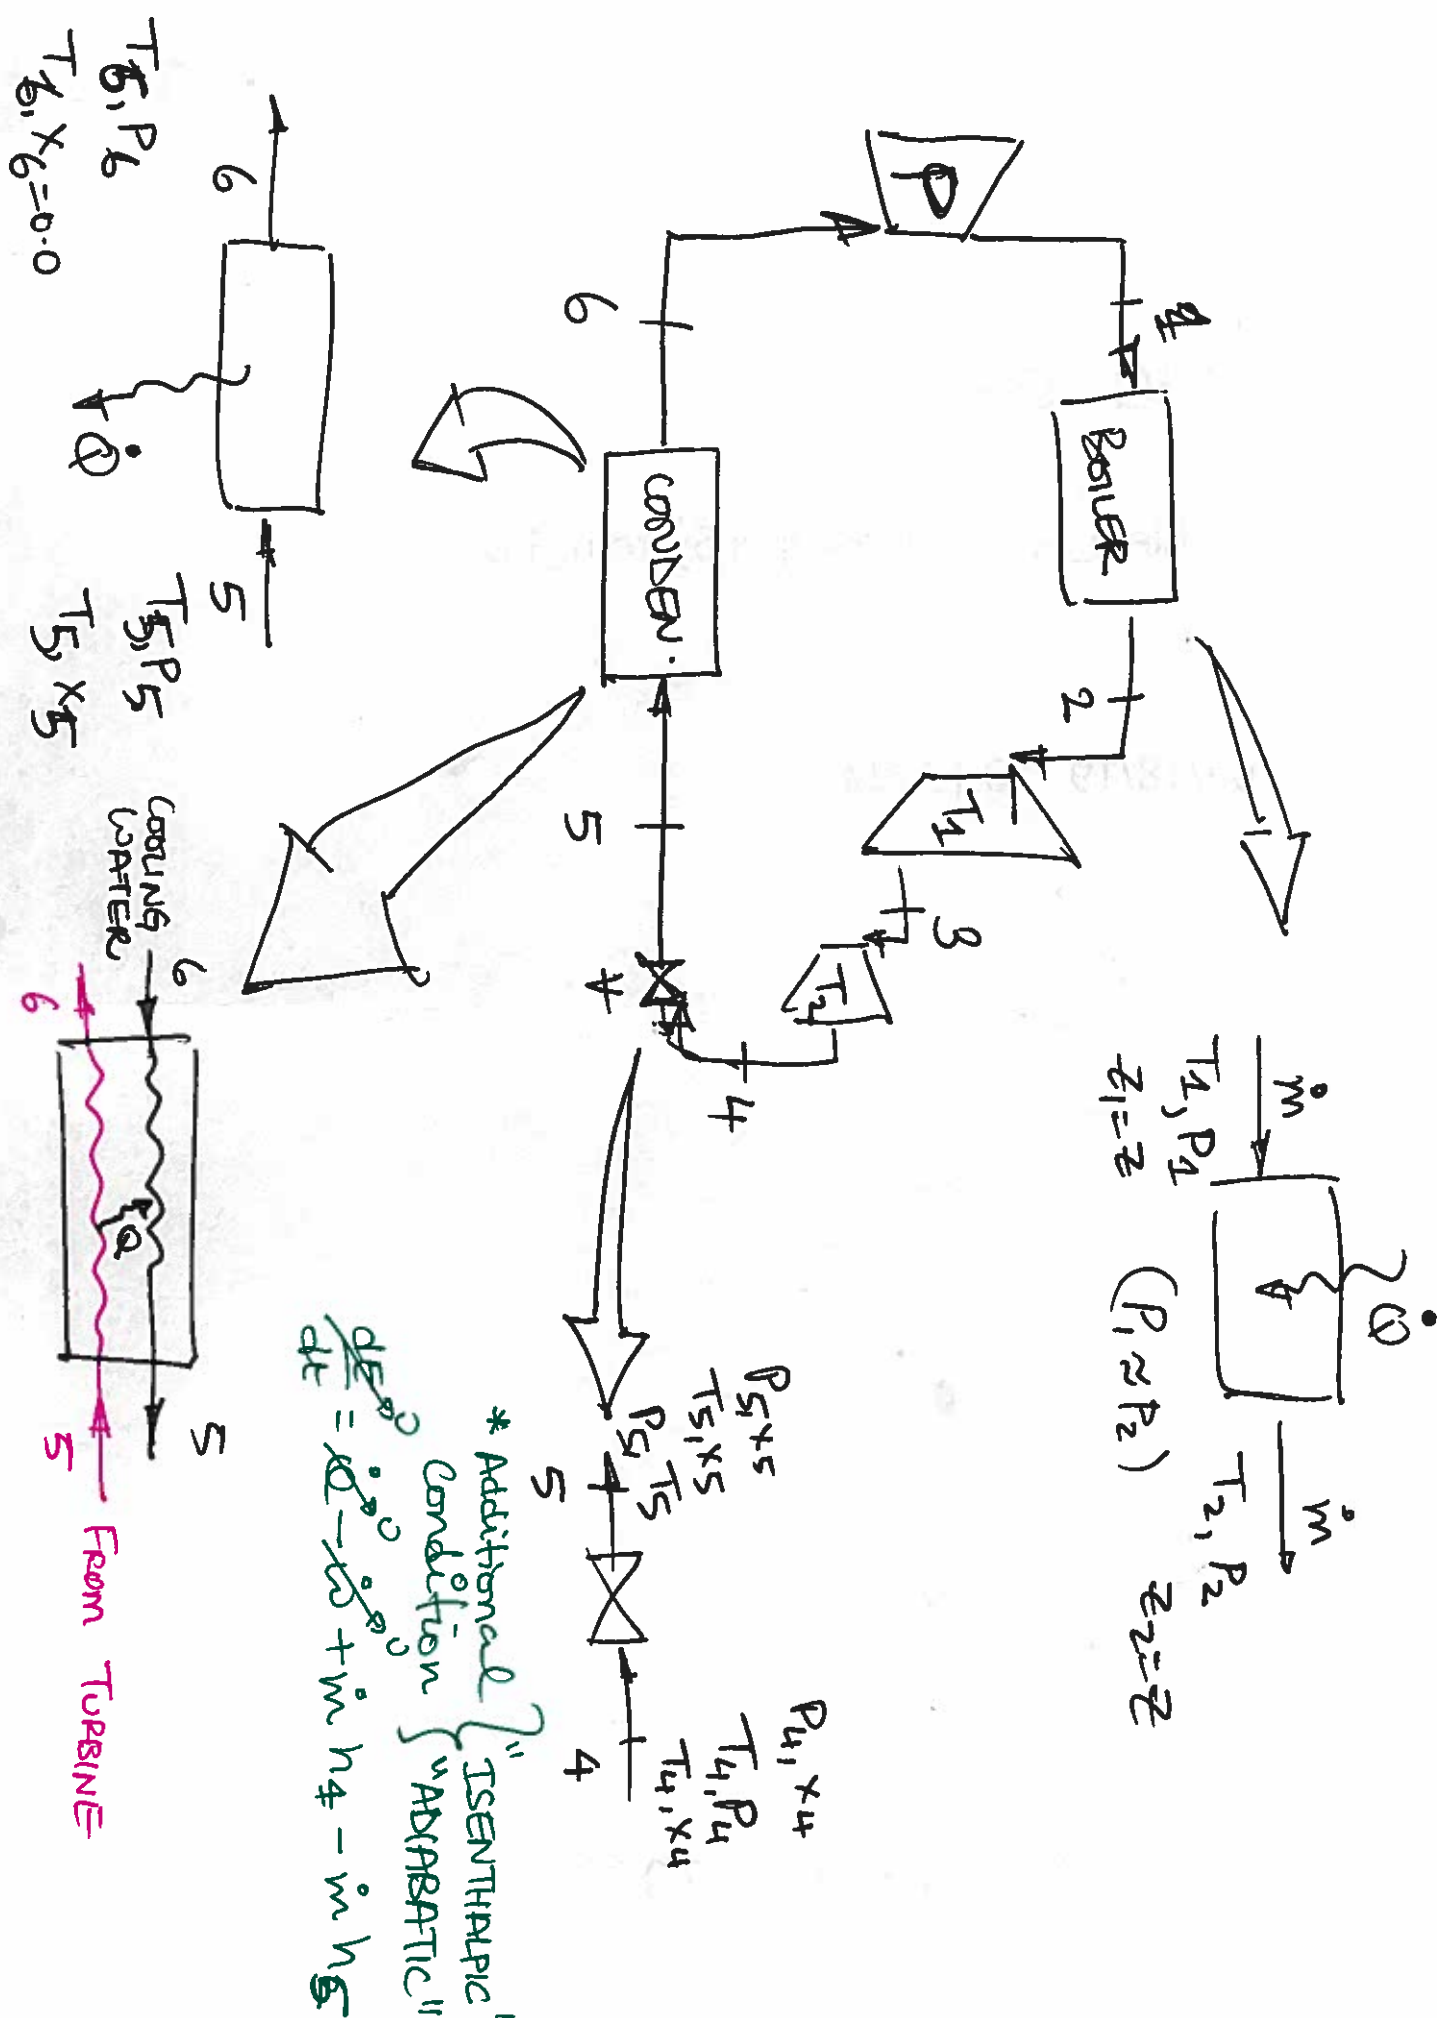 P
1
BOILER
2
T1
3
T2
4
5
6
CONDEN.
ṁ
T1, P1
Z1=Z
Q̇
(P1≈P2)
ṁ
T2, P2
Z2=Z
P5 x5
T5, x5
P5 T5
5
P4, x4
T4, P4
T4, x4
4
* Additional
Condition
"ISENTHALPIC"
"ADIABATIC"
dE/dt = Q̇ - ẇ + ṁ h4 - ṁ h5
0
0
0
6
Q̇
5
T6, P6
T6, x6=0.0
T5, P5
T5, x5
COOLING
WATER
6
5
Q
6
5
FROM TURBINE